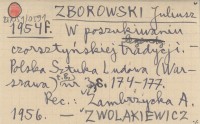 ZBOROWSKI Juliusz
1954 F. W poszukiwaniu
czorsztyńskiej tradycji. -
Polska Sztuka Ludowa (War-
szawa) 3, 174-177.
Rec.: Zambrzycka A.
1956. - ZWOLAKIEWICZ